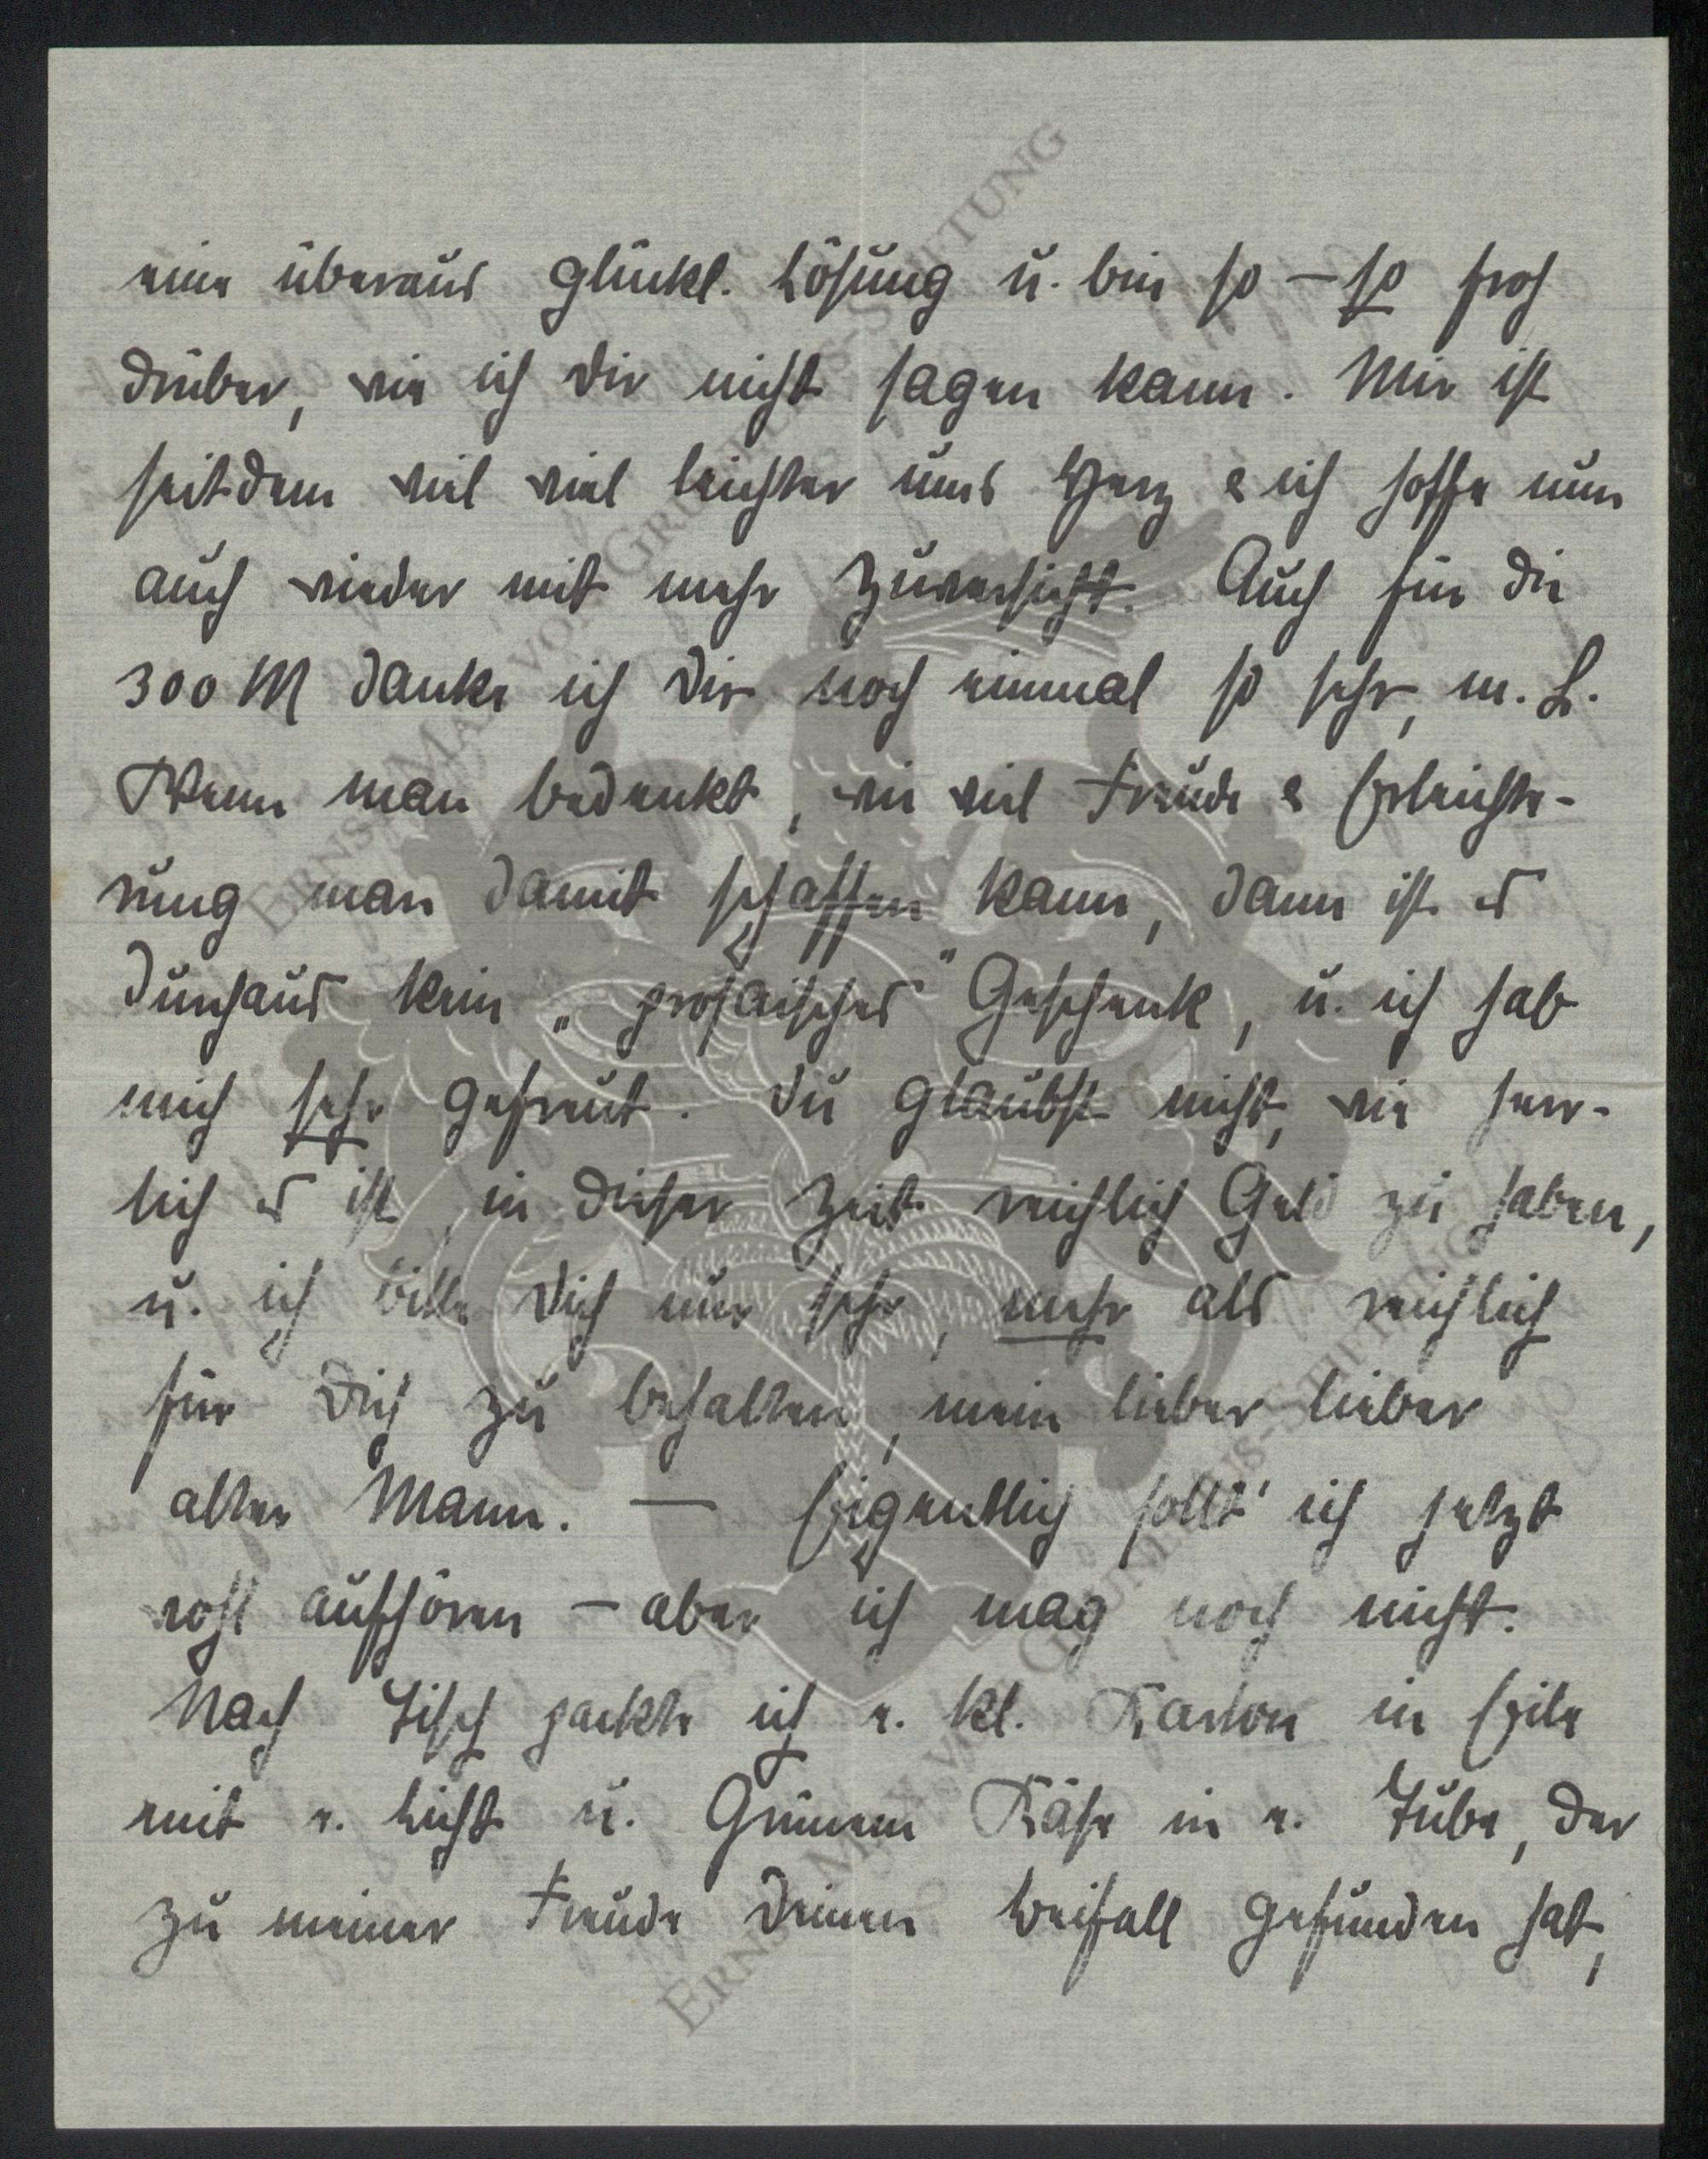 eine überaus glückl. Lösung u. bin so – so froh
drüber, wie ich Dir nicht sagen kann. Mir ist
seitdem viel viel leichter ums Herz & ich hoffe nun
auch wieder mit mehr Zuversicht. Auch für die
300 M danke ich Dir noch einmal so sehr, m. L.
Wenn man bedenkt, wie viel Freude & Erleichte-
rung man damit schaffen kann, dann ist es
durchaus kein „prosaisches" Geschenk, u. ich hab
mich sehr gefreut. Du glaubst nicht, wie herr-
lich es ist, in dieser Zeit reichlich Geld zu haben,
u. ich bitte Dich nur sehr, mehr als reichlich
für Dich zu behalten, mein lieber lieber
alter Mann. — Eigentlich sollt' ich jetzt
wohl aufhören – aber ich mag noch nicht.
Nach Tisch packte ich e. kl. Karton in Eile
mit e. Licht u. Grünem Käse in e. Tube, der
zu meiner Freude Deinen Beifall gefunden hat,
ERNST MAX VON GRUNELIUS-STIFTUNG
ERNST MAX VON GRUNELIUS-STIFTUNG